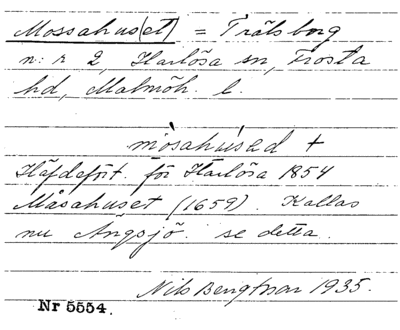 Mossahus(et) = Trälsborg
n:r 2, Harlösa sn, Frosta
hd, Malmöh. l.
mòsahúsəd +
Häfdefört. för Harlösa 1854
Måsahuset (1659). Kallas
nu Ängsjö. se detta.
Nils Bengtsson 1935.
Nr 5554.